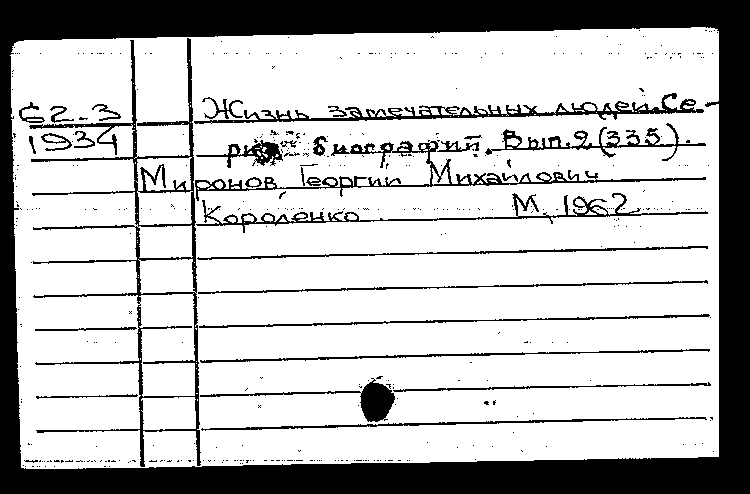 62-3
1934
Жизнь замечательных людей. Се-
рия биографий. Вып. 2 (335).
Миронов, Георгий Михайлович
Короленко М, 1962